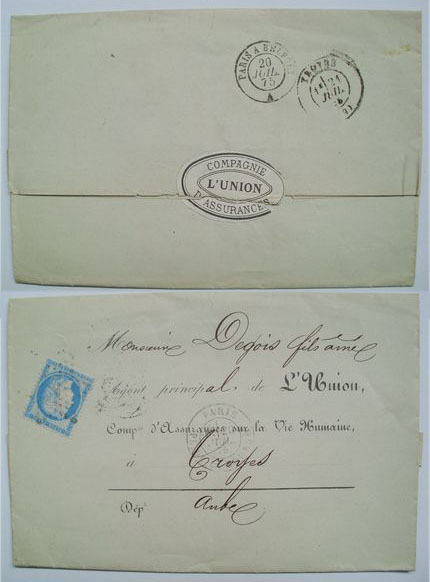 PARIS A BRI
20
JUIL.
75
A
TROYES
21
JUIL.
COMPAGNIE
L'UNION
D'ASSURANCES
Monsieur Degois fils aîné
Agent principal de L'Union,
Comp.ie d'Assurances sur la Vie Humaine,
PARIS
à Troyes
Dép.t Aube